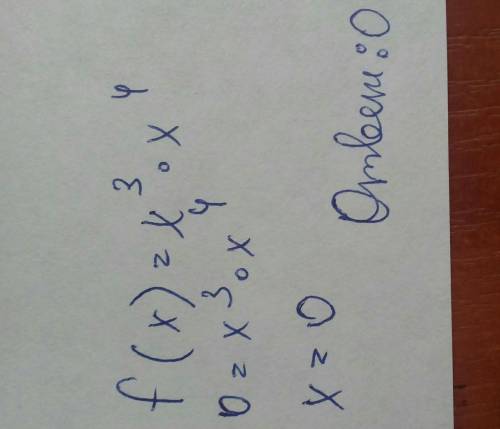 f(x) = x³ ∘ x⁴
0 = x³ ∘ x⁴
x = 0
Ответ: 0